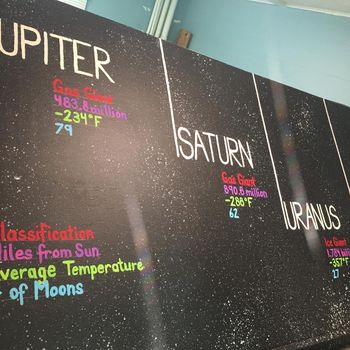 UPITER
Gas Giant
483.8 million
-234°F
79
SATURN
Gas Giant
890.8 million
-288°F
62
URANUS
Ice Giant
27
lassification
iles from Sun
verage Temperature
of Moons